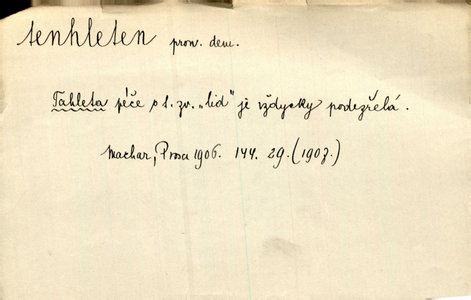 tenhleten pron. dem.
Tahleta péče o t. zv. „lid" je vždycky podezřelá.
Machar, Prosa 1906. 144. 29. (1907.)